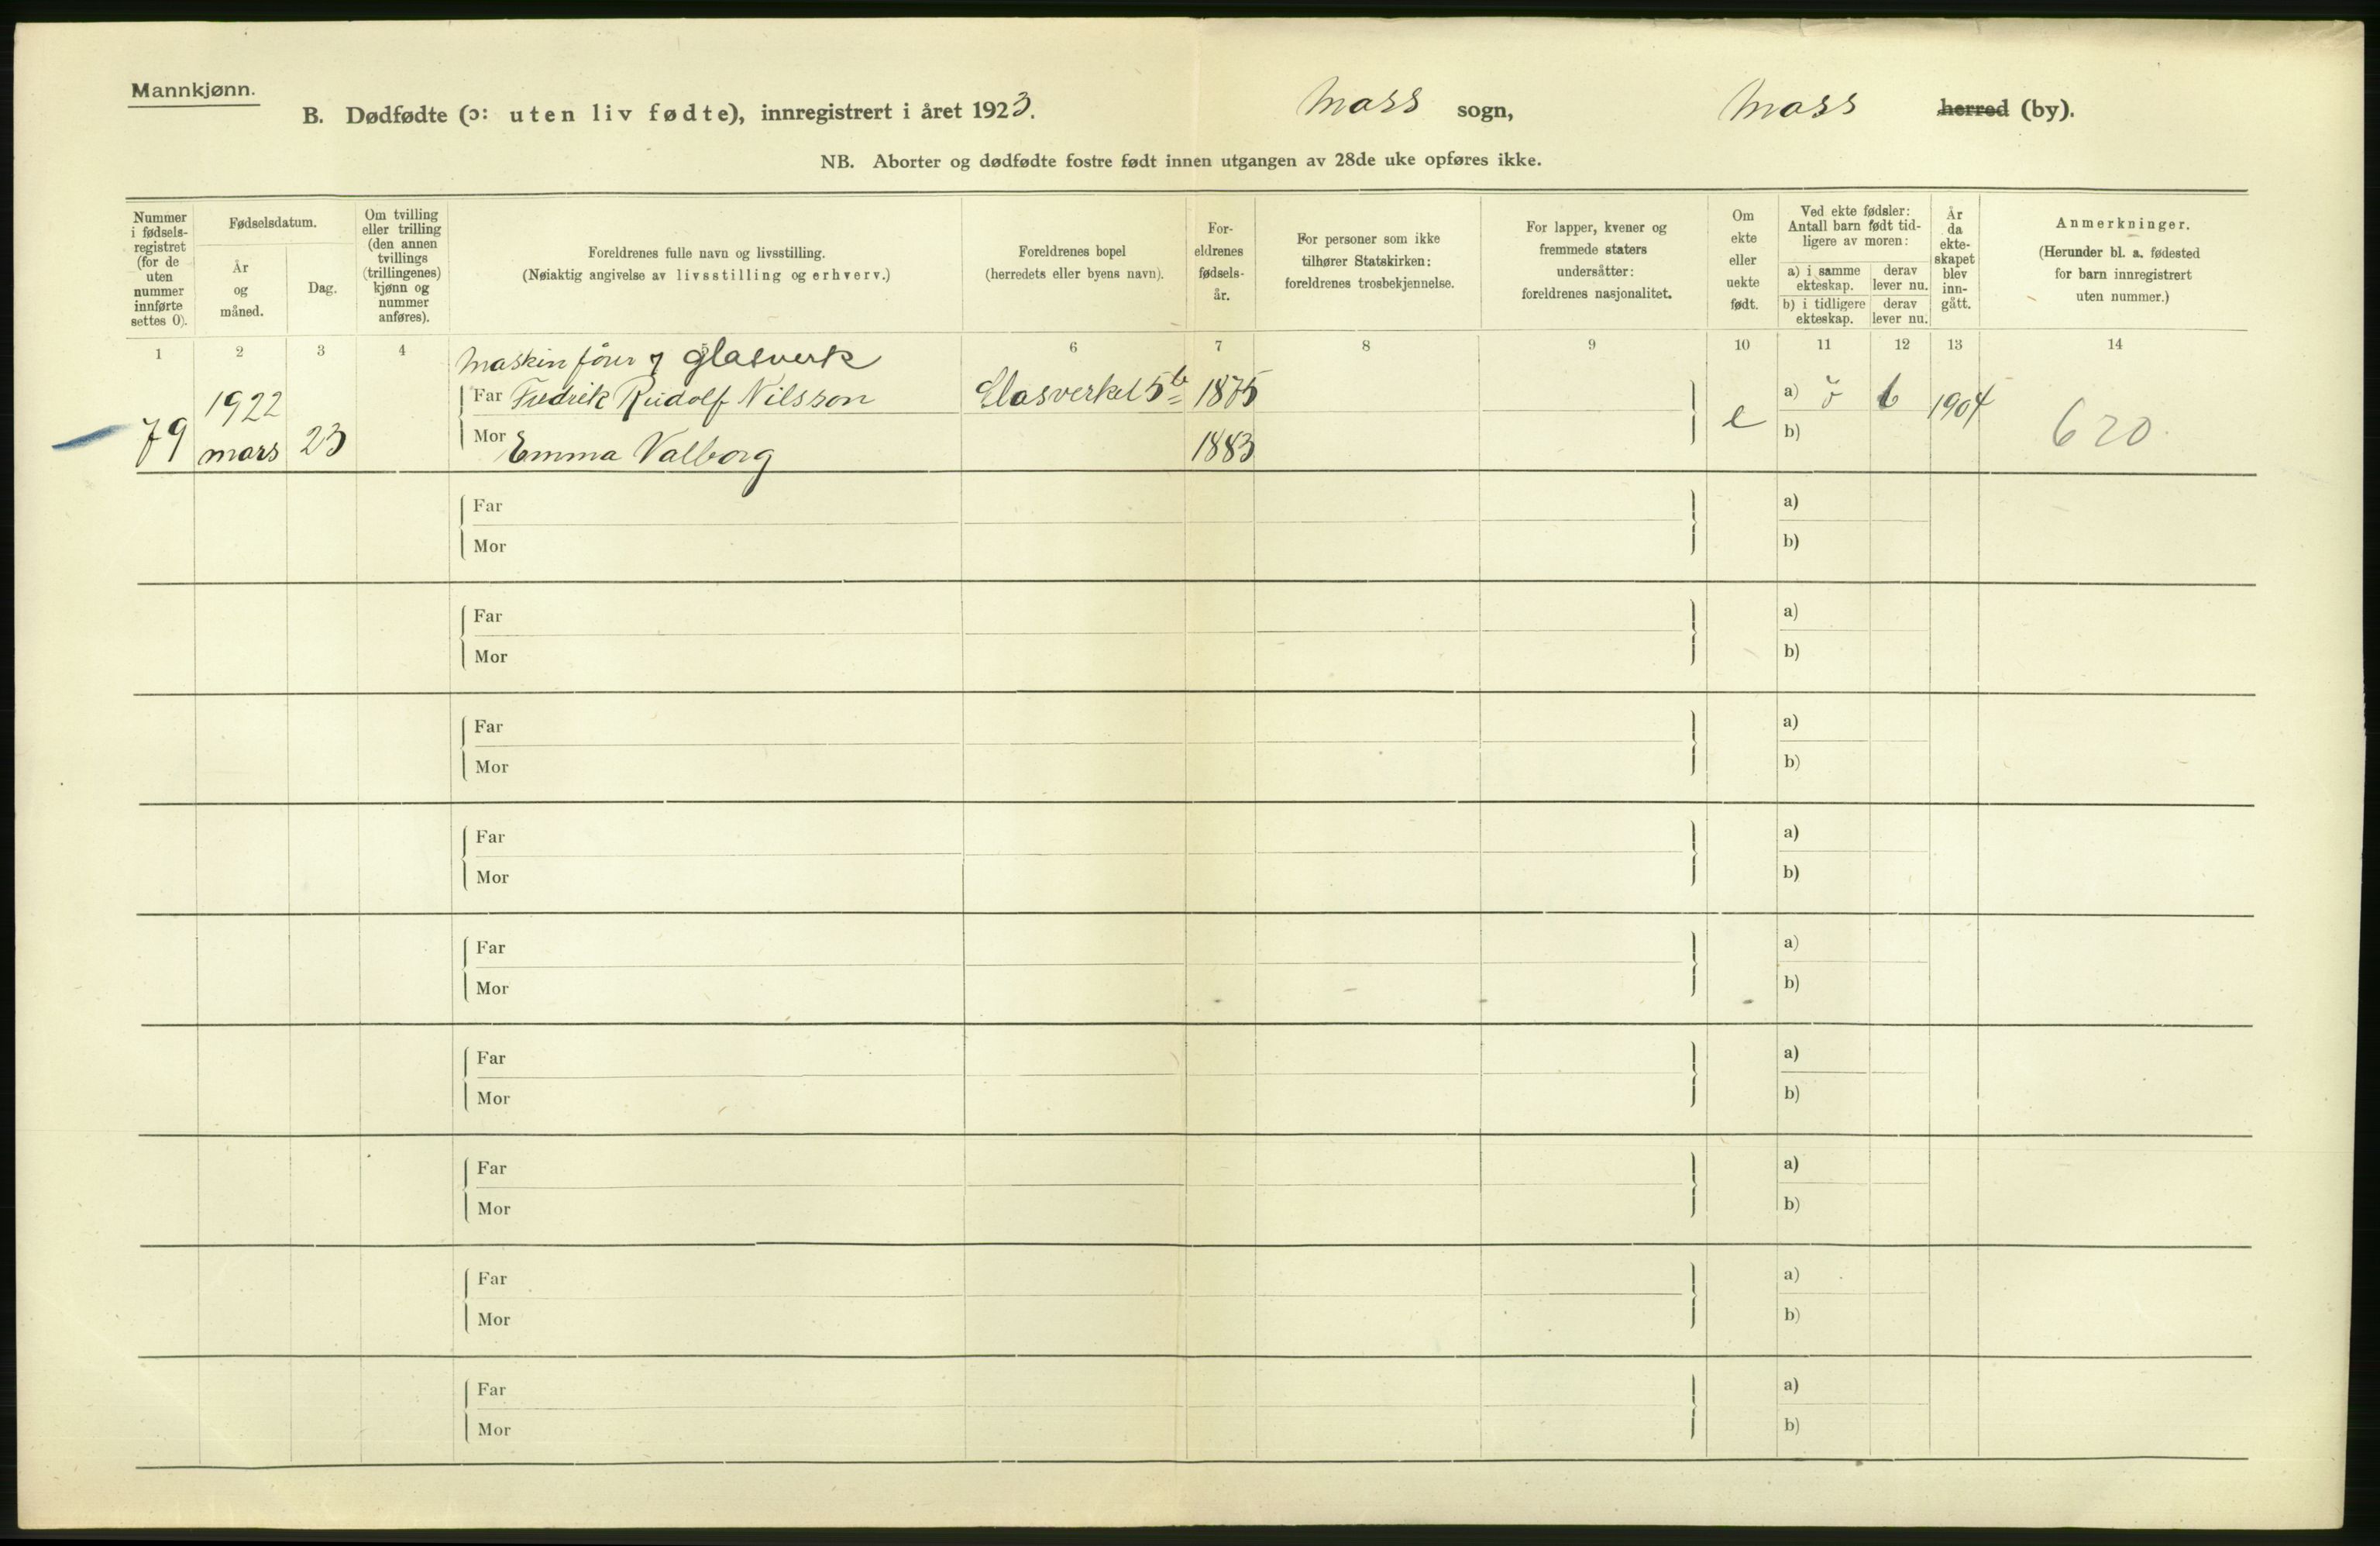 Mannkjønn.
B. Dødfødte (ɔ: uten liv fødte), innregistrert i året 1923. Moss sogn, Moss herred (by).
NB. Aborter og dødfødte fostre født innen utgangen av 28de uke opføres ikke.
Nummer i fødsels-registret (for de uten nummer innførte settes 0).
Fødselsdatum.
År og måned.
Dag.
Om tvilling eller trilling (den annen tvillings (trillingenes) kjønn og nummer anføres).
Foreldrenes fulle navn og livsstilling.
(Nøiaktig angivelse av livsstilling og erhverv.)
Foreldrenes bopel
(herredets eller byens navn).
For-eldrenes fødsels-år.
For personer som ikke tilhører Statskirken: foreldrenes trosbekjennelse.
For lapper, kvener og fremmede staters undersåtter: foreldrenes nasjonalitet.
Om ekte eller uekte født.
Ved ekte fødsler: Antall barn født tid-ligere av moren:
a) i samme ekteskap.
derav lever nu.
b) i tidligere ekteskap.
derav lever nu.
År da ekte-skapet blev inn-gått.
Anmerkninger.
(Herunder bl. a. fødested for barn innregistrert uten nummer.)
1 2 3 4 5 6 7 8 9 10 11 12 13 14
Maskinfører glasverk
1922 Far Fredrik Rudolf Nilsson Glasverket 5b 1875 e a) 6 1904
79 mars 23 Mor Emma Valborg 1883 b) 620
Far a)
Mor b)
Far a)
Mor b)
Far a)
Mor b)
Far a)
Mor b)
Far a)
Mor b)
Far a)
Mor b)
Far a)
Mor b)
Far a)
Mor b)
Far a)
Mor b)